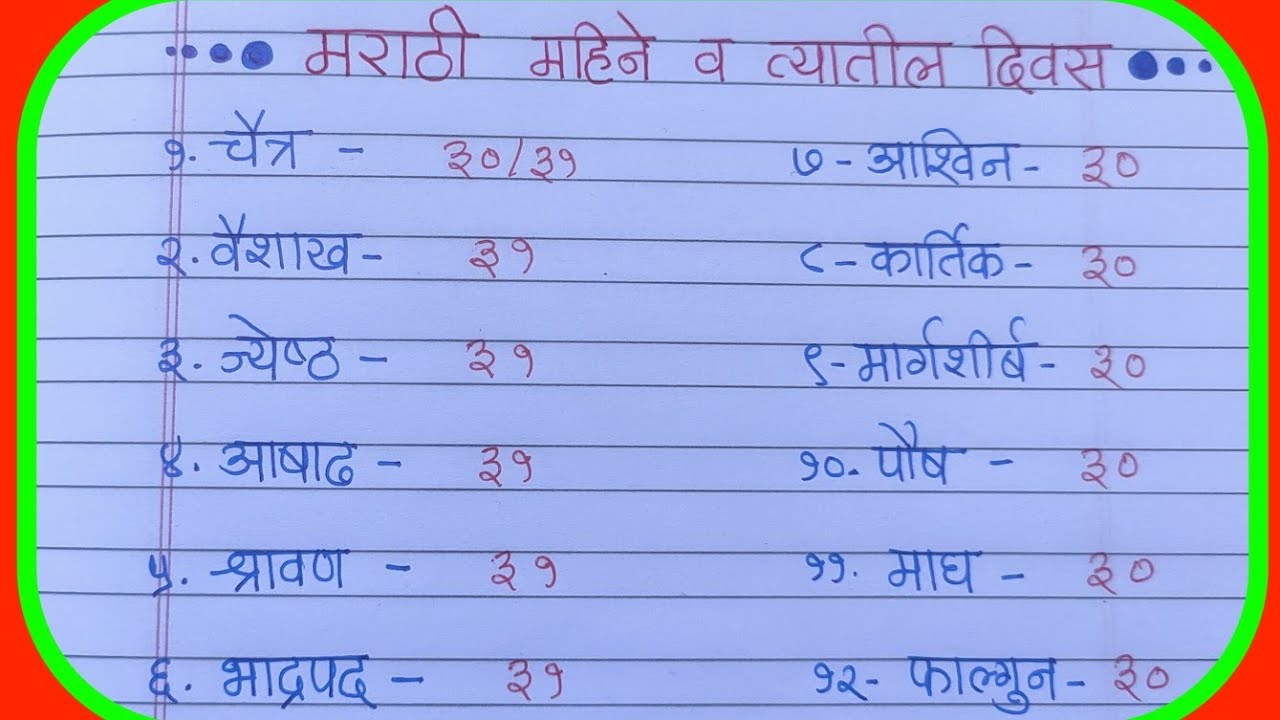 मराठी महिने व त्यातील दिवस
१. चैत्र - ३०/३१
२. वैशाख - ३१
३. ज्येष्ठ - ३१
४. आषाढ - ३१
५. श्रावण - ३१
६. भाद्रपद - ३१
७ - आश्विन - ३०
८ - कार्तिक - ३०
९ - मार्गशीर्ष - ३०
१०. पौष - ३०
११. माघ - ३०
१२ - फाल्गुन - ३०